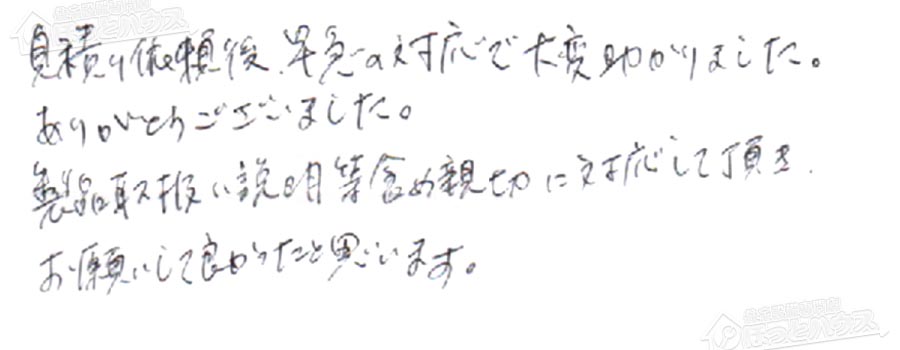 見積り依頼後、早急の対応で大変助かりました。
ありがとうございました。
製品取扱い説明等含め親切に対応して頂き、
お願いして良かったと思います。
ほっとハウス
ほっとハウス